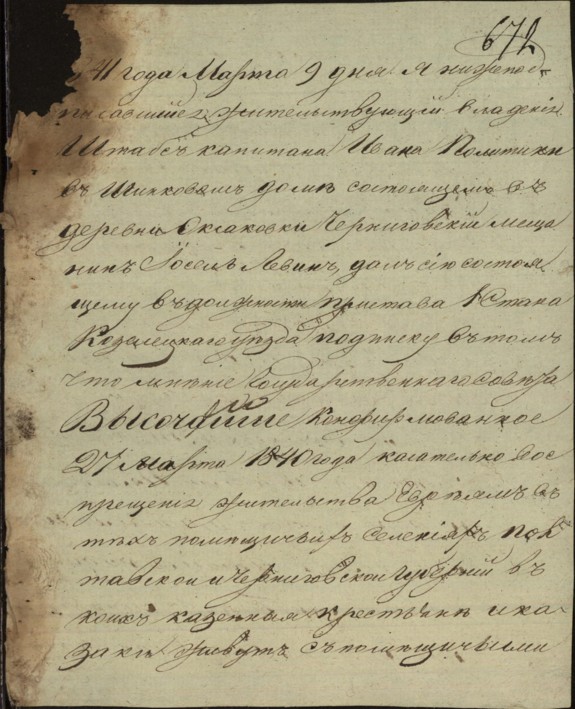 672
41 года Марта 9 дня я нижепод-
писавшійся жительствующій в ладеніи
Штабсъ капитана Ивана Политики
въ Шинковомъ домѣ состоящемъ въ
деревни Черниговскій меща
нинъ Іосель Левинъ, далъ сію состоя-
щему въ должности пристава 1 Стана
Козелецкаго уѣзда подписку въ томъ
что мнѣніе Государственнаго Совѣта
Высочайше Конфирмованное
27 Марта 1840 года касательно вос
прещенія жительства Евреямъ въ
тѣхъ помѣщичьихъ селеніяхъ Пол
тавской и Черниговской Губерній въ
коихъ казенныя крестьяне и ка-
заки живутъ съ помѣщичьими